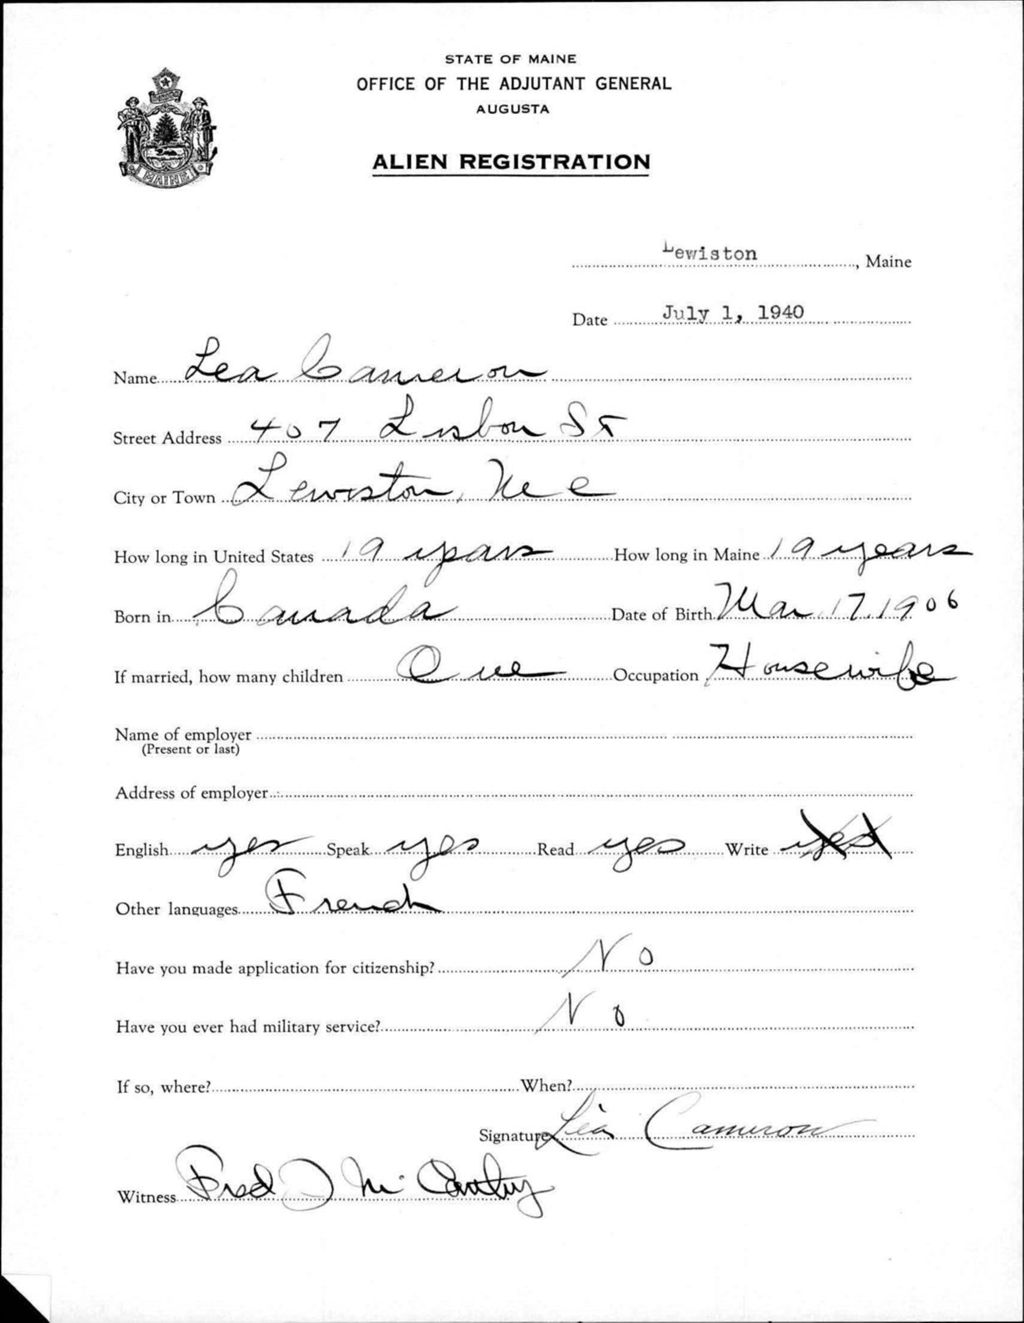 STATE OF MAINE
OFFICE OF THE ADJUTANT GENERAL
AUGUSTA
ALIEN REGISTRATION
MAINE
Lewiston, Maine
Date July 1, 1940
Name Lea Cameron
Street Address 407 Lisbon St
City or Town Lewiston, Me
How long in United States 19 years How long in Maine 19 years
Born in Canada Date of Birth Mar 17, 1906
If married, how many children One Occupation Housewife
Name of employer
(Present or last)
Address of employer
English yes Speak yes Read yes Write yes
Other languages French
Have you made application for citizenship? No
Have you ever had military service? No
If so, where? When?
Signature Léa Cameron
Witness Fred J McCarthy